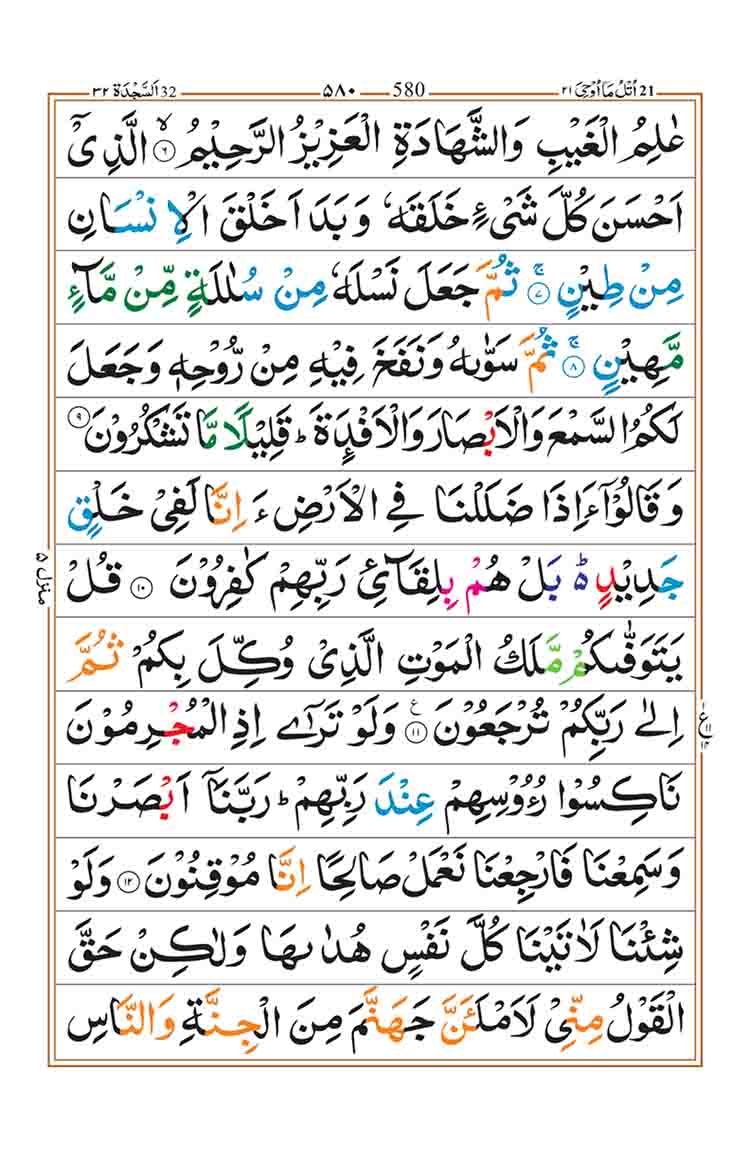 21 اُتْلُ مَاۤ اُوْحِیَ ٢١ 580 ٥٨٠ 32 اَلسَّجْدَة ٣٢
عٰلِمُ الْغَیْبِ وَالشَّهَادَةِ الْعَزِیْزُ الرَّحِیْمُ ۙ﴿٦﴾ الَّذِیْۤ
اَحْسَنَ كُلَّ شَیْءٍ خَلَقَهٗ وَ بَدَاَ خَلْقَ الْاِنْسَانِ
مِنْ طِیْنٍ ۚ﴿٧﴾ ثُمَّ جَعَلَ نَسْلَهٗ مِنْ سُلٰلَةٍ مِّنْ مَّآءٍ
مَّهِیْنٍ ۚ﴿٨﴾ ثُمَّ سَوّٰىهُ وَ نَفَخَ فِیْهِ مِنْ رُّوْحِهٖ وَجَعَلَ
لَكُمُ السَّمْعَ وَالْاَبْصَارَ وَالْاَفْـِٕدَةَ ؕ قَلِیْلًا مَّا تَشْكُرُوْنَ ﴿٩﴾
وَ قَالُوْۤا ءَاِذَا ضَلَلْنَا فِی الْاَرْضِ ءَ اِنَّا لَفِیْ خَلْقٍ
جَدِیْدٍ ؕ۬ بَلْ هُمْ بِلِقَآئِ رَبِّهِمْ كٰفِرُوْنَ ﴿١٠﴾ قُلْ
یَتَوَفّٰىكُمْ مَّلَكُ الْمَوْتِ الَّذِیْ وُكِّلَ بِكُمْ ثُمَّ
اِلٰی رَبِّكُمْ تُرْجَعُوْنَ ﴿١١﴾ ع وَلَوْ تَرٰۤی اِذِ الْمُجْرِمُوْنَ
نَاكِسُوْا رُءُوْسِهِمْ عِنْدَ رَبِّهِمْ ؕ رَبَّنَاۤ اَبْصَرْنَا
وَسَمِعْنَا فَارْجِعْنَا نَعْمَلْ صَالِحًا اِنَّا مُوْقِنُوْنَ ﴿١٢﴾ وَلَوْ
شِئْنَا لَاٰتَیْنَا كُلَّ نَفْسٍ هُدٰىهَا وَلٰكِنْ حَقَّ
الْقَوْلُ مِنِّیْ لَاَمْلَـَٔنَّ جَهَنَّمَ مِنَ الْجِنَّةِ وَالنَّاسِ
منزل ٥